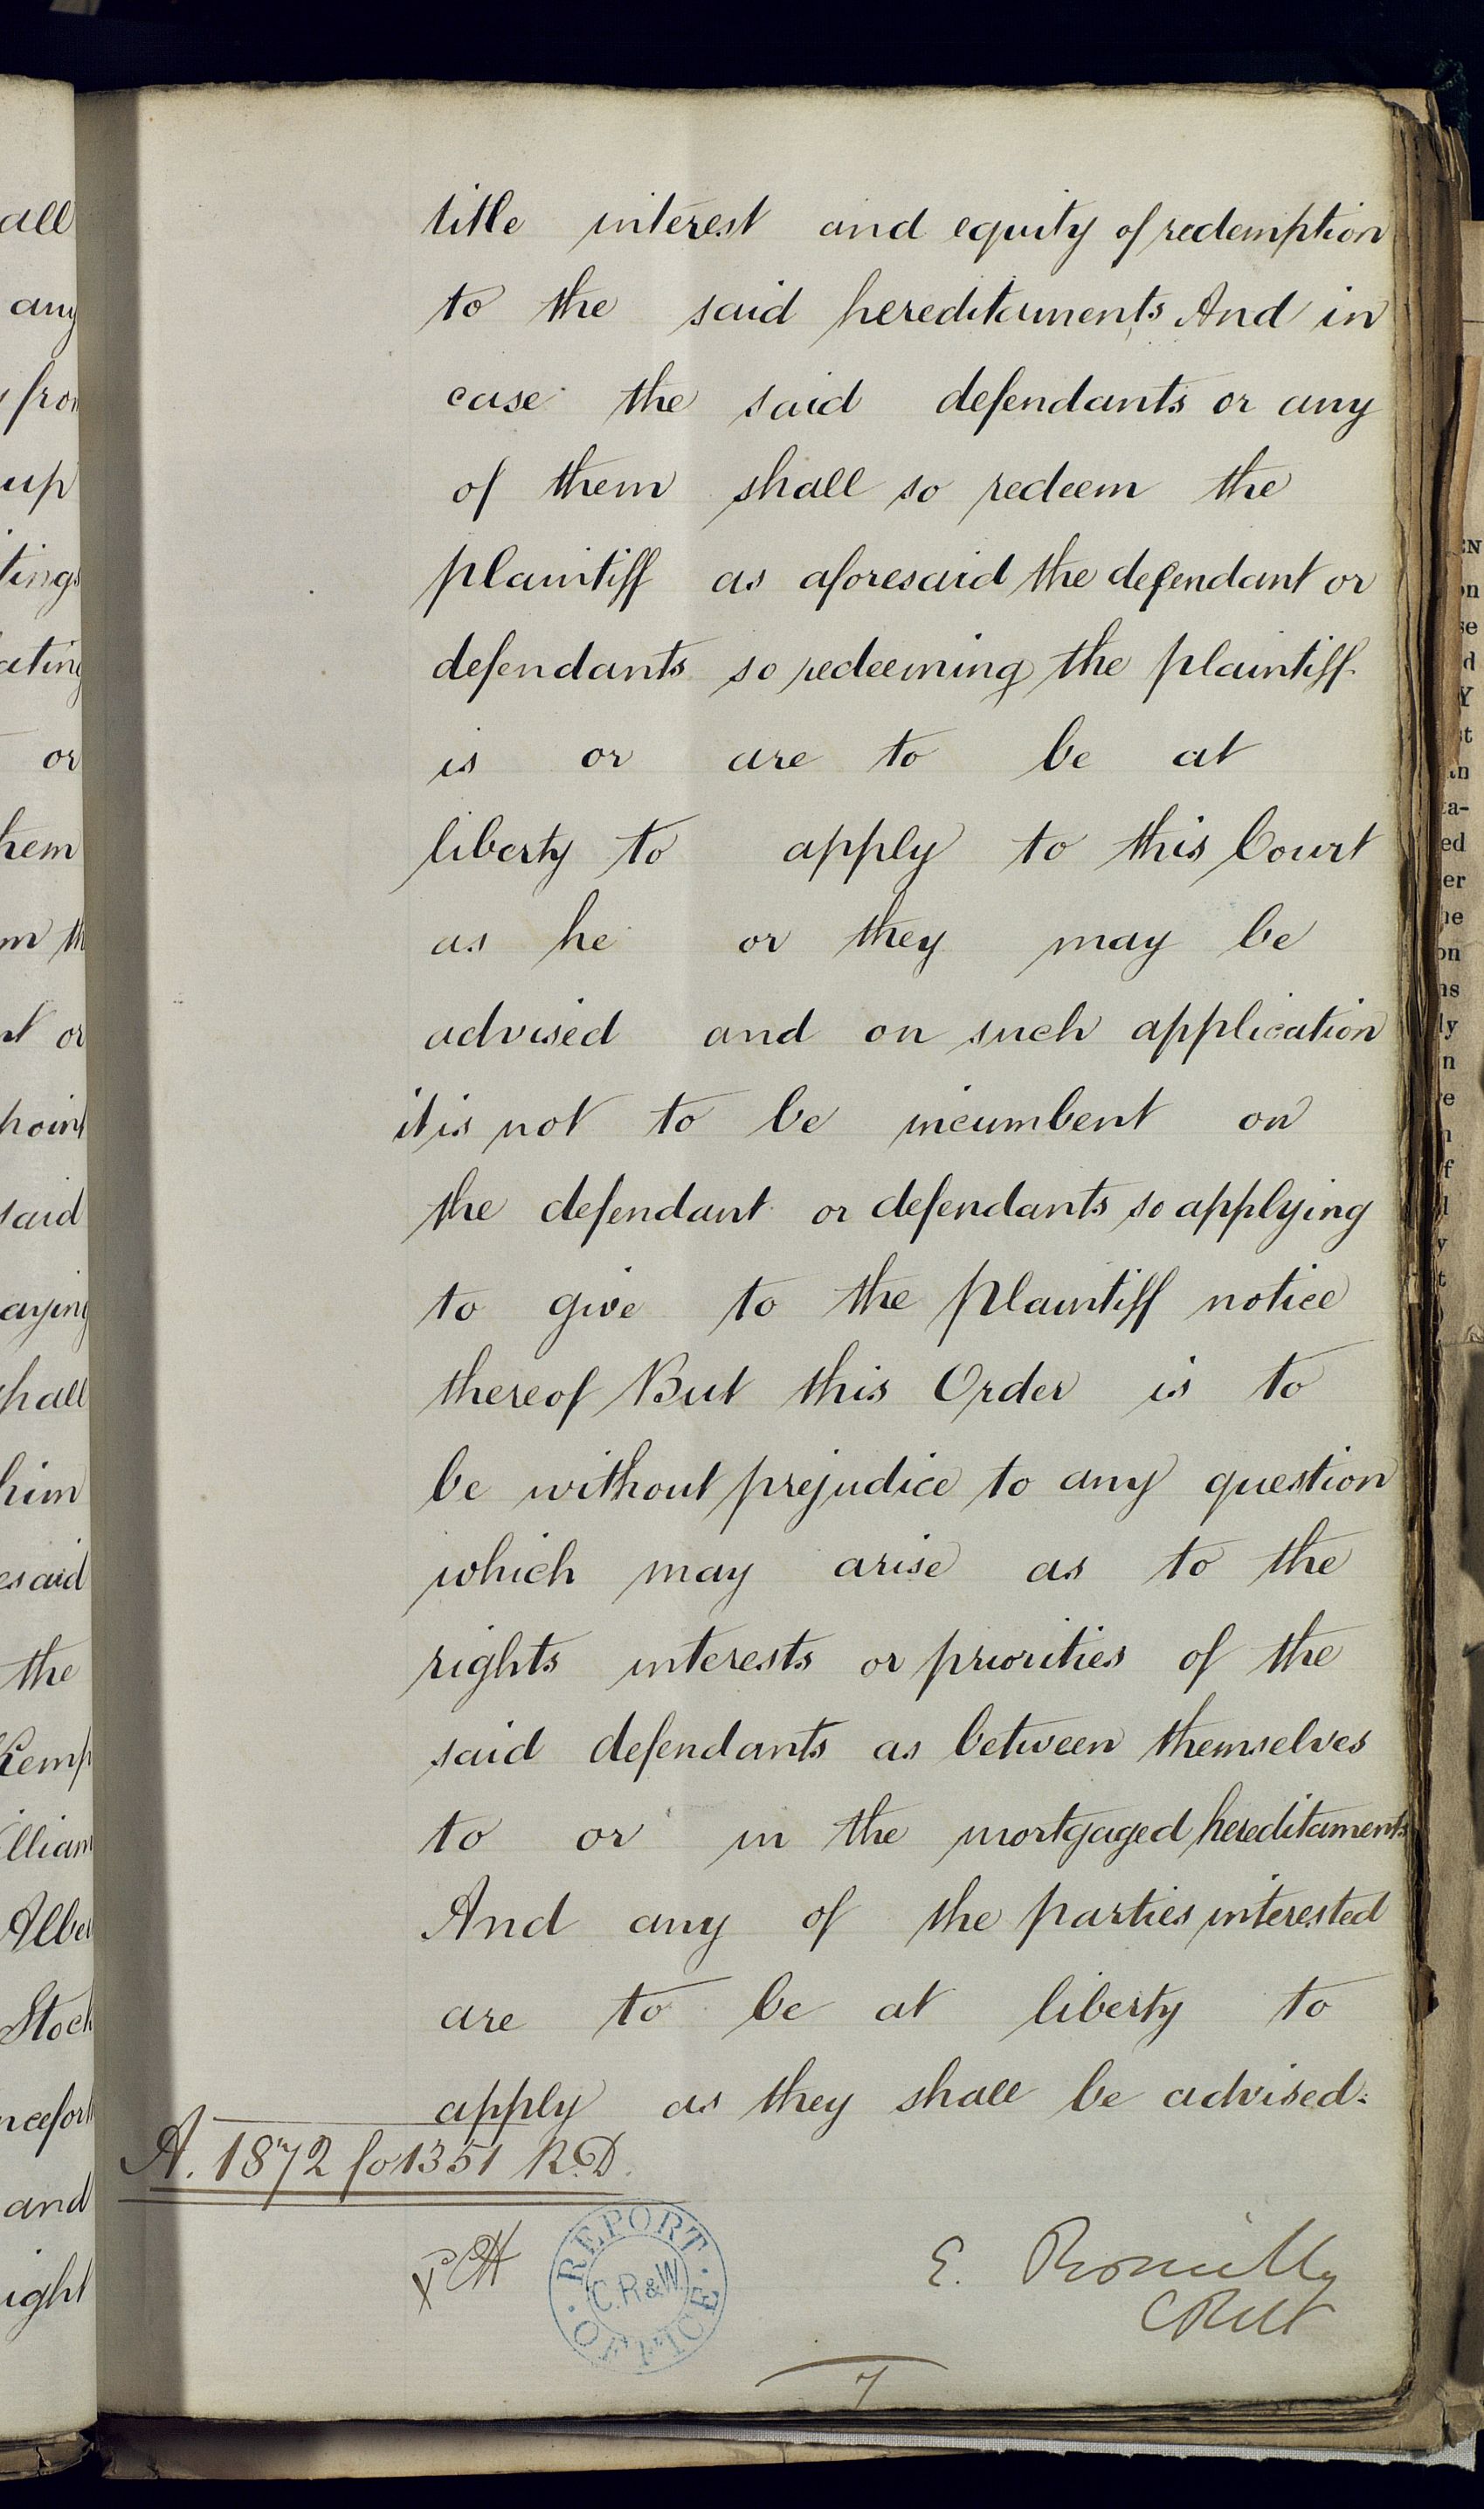 title interest and equity of redemption
to the said hereditaments And in
case the said defendants or any
of them shall so redeem the
plaintiff as aforesaid the defendant or
defendants so redeeming the plaintiff
is or are to be at
liberty to apply to this Court
as he or they may be
advised and on such application
it is not to be incumbent on
the defendant or defendants so applying
to give to the plaintiff notice
thereof But this Order is to
be without prejudice to any question
which may arise as to the
rights interests or priorities of the
said defendants as between themselves
to or in the mortgaged hereditaments
And any of the parties interested
are to be at liberty to
apply as they shall be advised.
A. 1872 fo 1351 R.D.
REPORT OFFICE
C.R&W
E. Romilly
7
all
any
up
or
hem
said
hall
him
esaid
the
and
ight